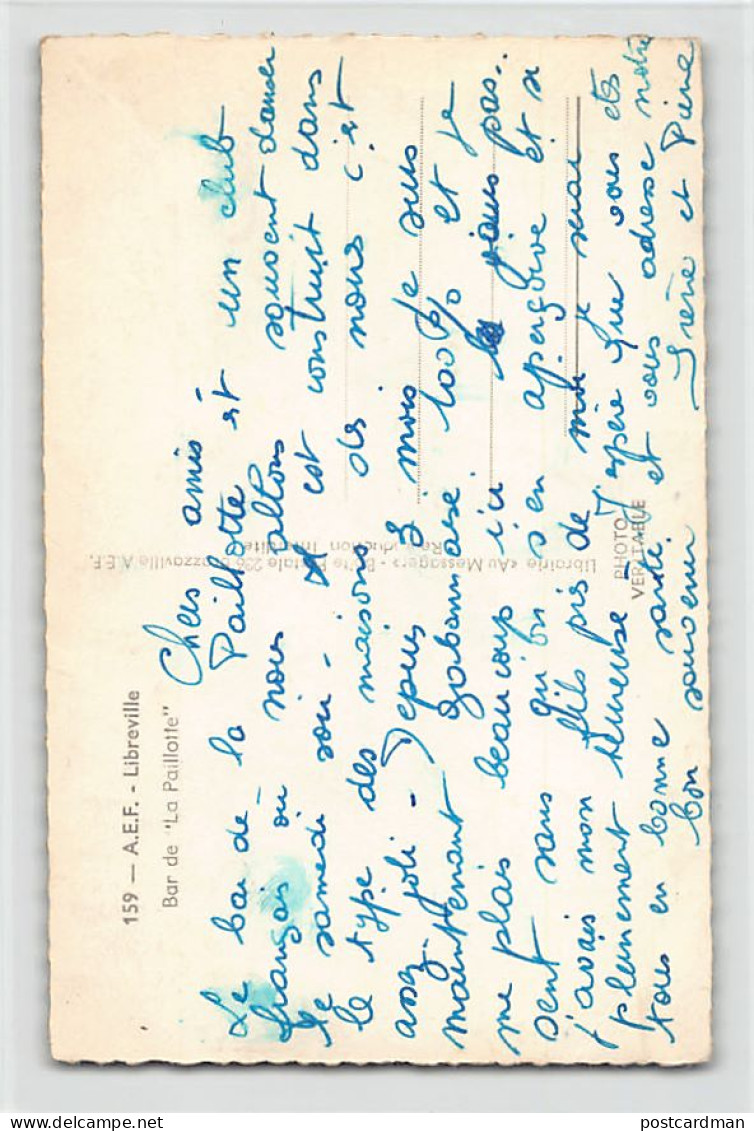 159 — A.E.F. - Libreville
Bar de "La Paillotte"
Chers amis
Le bar de la Paillotte est un club
français où nous allons souvent danser
le samedi soir - est construit dans
le type des maisons de nous c'est
assez joli - Depuis 3 mois je suis
maintenant gabonnaise 100% et je
me plais beaucoup ici les jours pas..
sent sans qu'on s'en aperçoive et si
j'avais mon fils près de moi je serai
pleinement heureuse - J'espère que vous êtes
tous en bonne santé et vous adresse notre
bon souvenir Irène et Pierre
Librairie «Au Messager» - Boîte Postale 236 Brazzaville A.E.F.
Reproduction Interdite
PHOTO
VERITABLE
postcardman